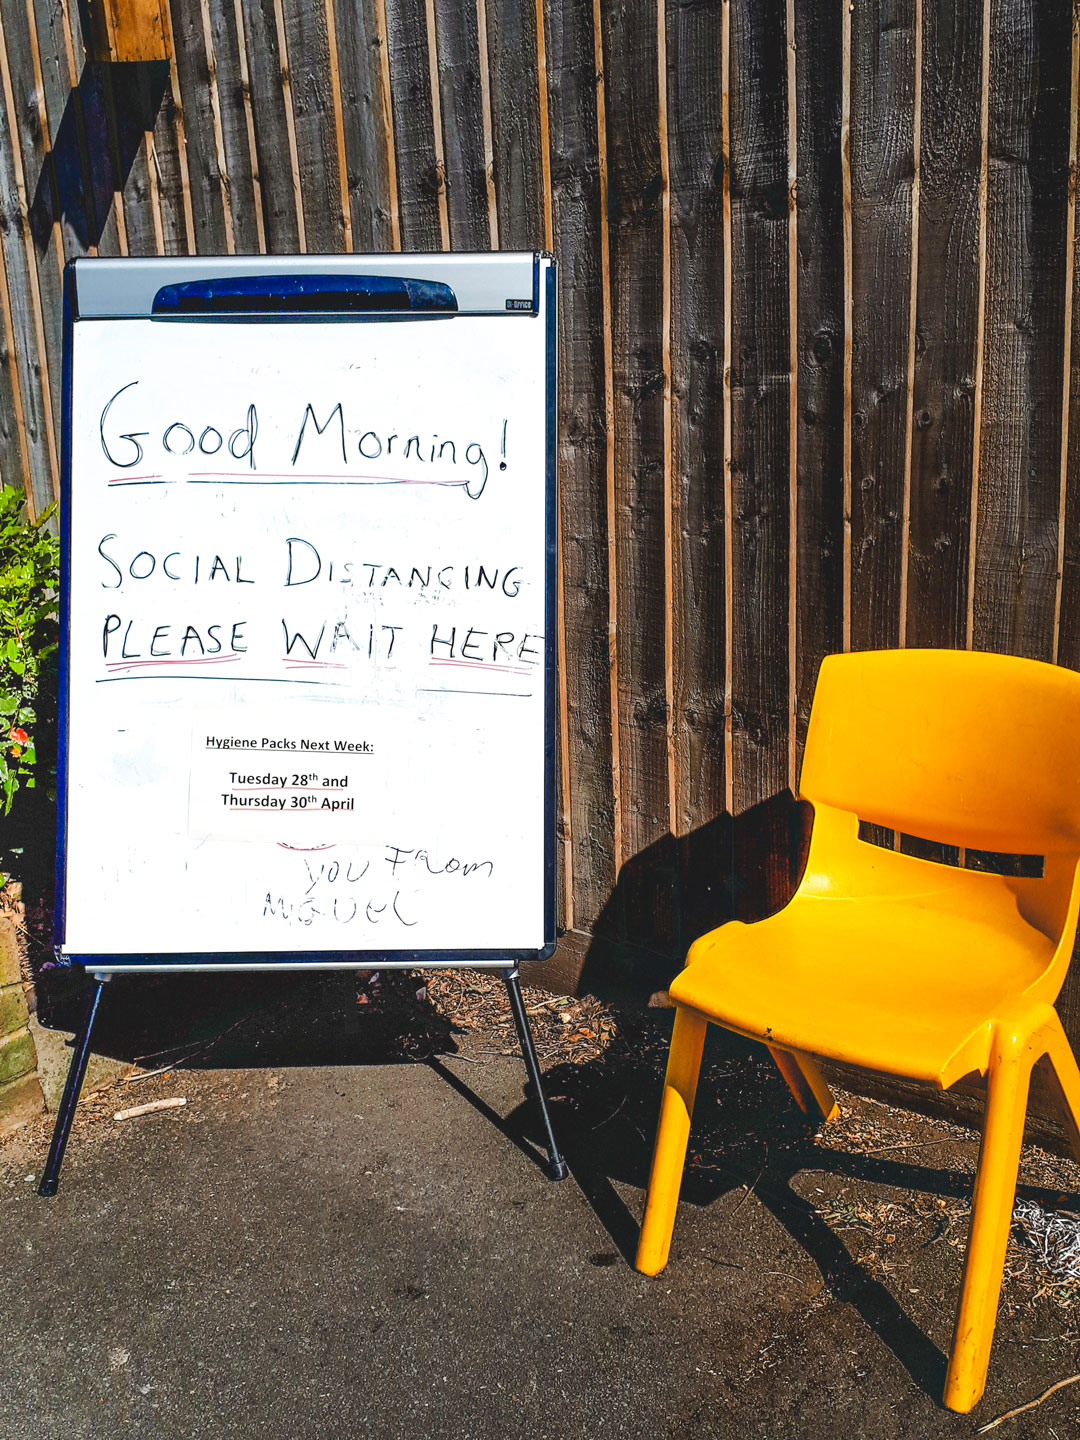 Bi-Office
Good Morning!
SOCIAL DISTANCING
PLEASE WAIT HERE
Hygiene Packs Next Week:
Tuesday 28th and
Thursday 30th April
you From
MIGUEL